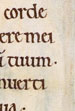 corde
ere mei
tuum·
nuerti
ua·